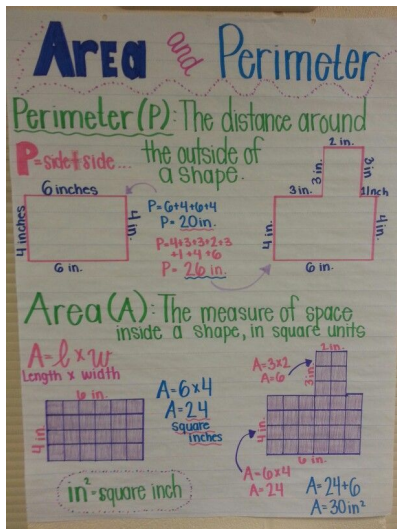 Area and Perimeter
Perimeter (P): The distance around
the outside of
a shape.
P=side+side...
6 inches
4 inches
4 in.
6 in.
P=6+4+6+4
P=20in.
P=4+3+3+2+3
+1+4+6
P=26 in.
2 in.
3 in.
3in
3in.
1Inch
4 in.
4in.
6 in.
Area (A): The measure of space
inside a shape, in square units
A=l x w
Length x width
6 in.
4 in.
A=6x4
A=24
square
inches
in²=square inch
A=3x2
A=6
2in.
3in.
4in.
6 in.
A=6x4
A=24
A=24+6
A=30in²